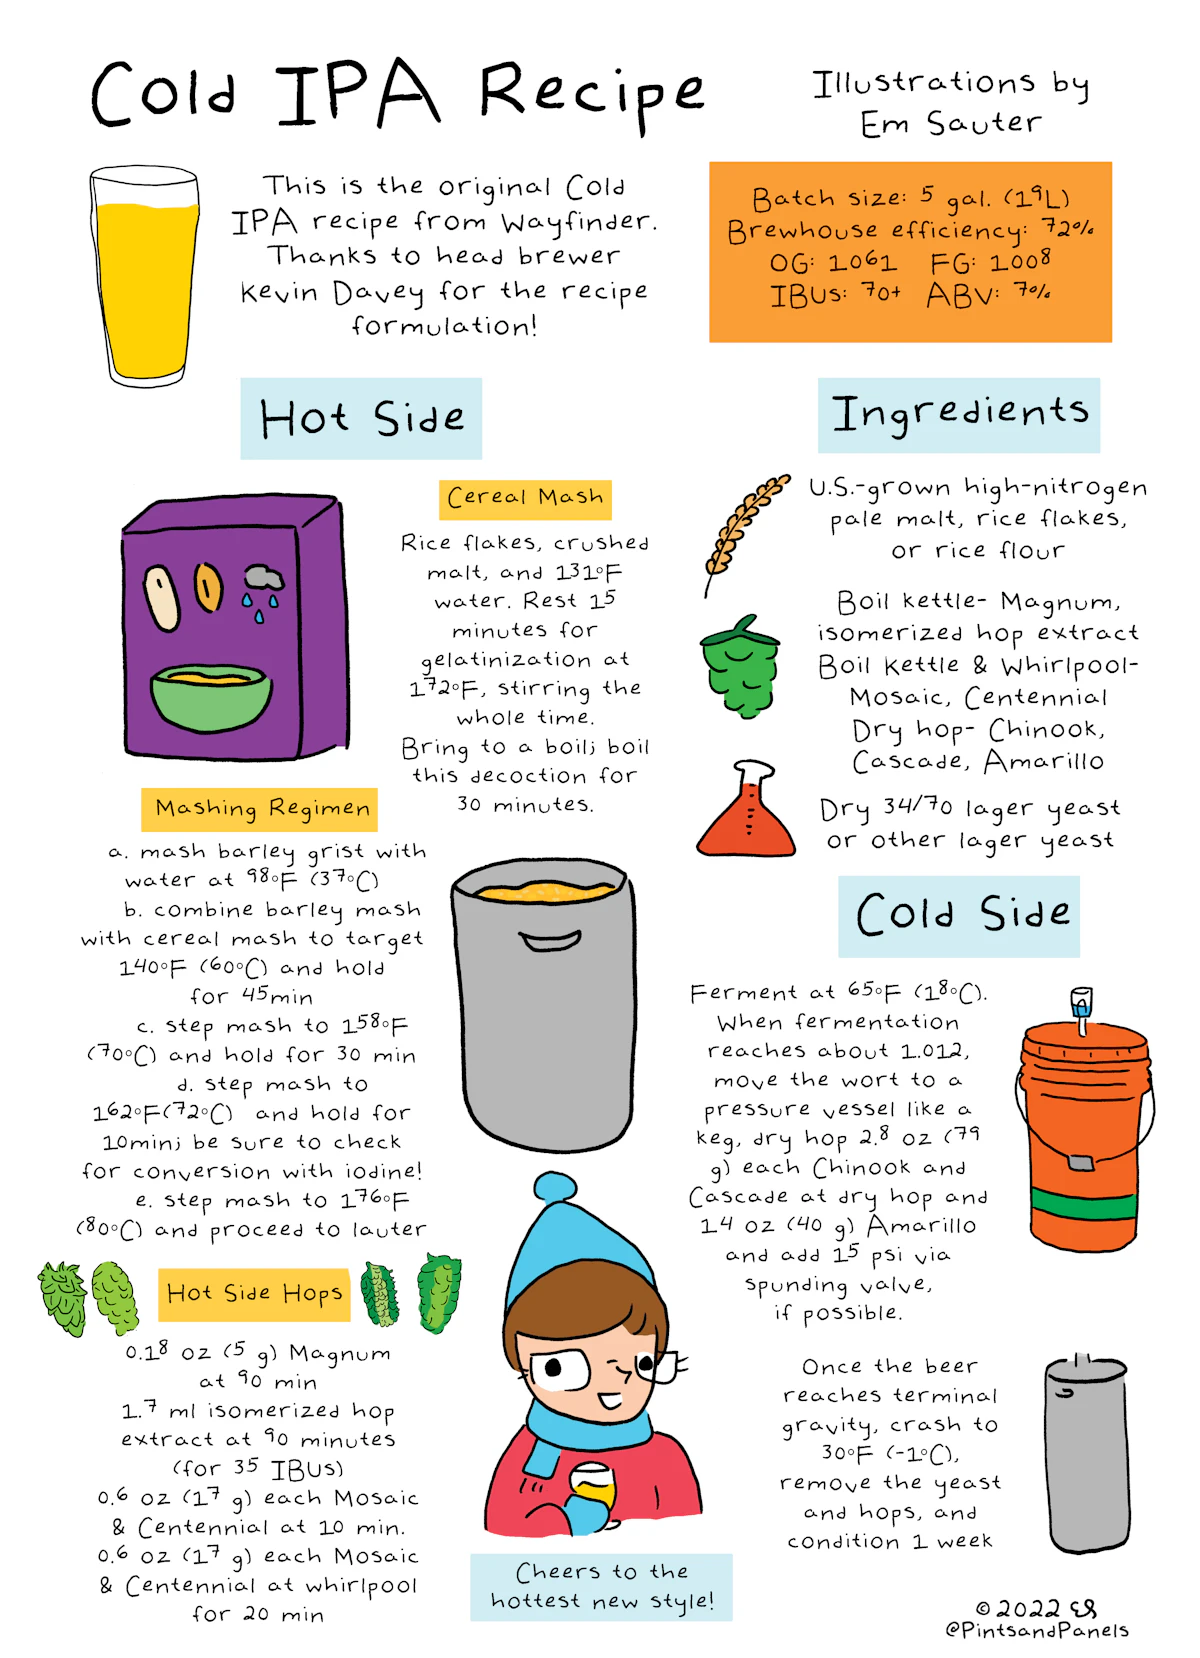 Cold IPA Recipe
Illustrations by
Em Sauter
This is the original Cold
IPA recipe from Wayfinder.
Thanks to head brewer
Kevin Davey for the recipe
formulation!
Batch size: 5 gal. (19L)
Brewhouse efficiency: 72%
OG: 1.061 FG: 1.008
IBUs: 70+ ABV: 7%
Hot Side
Cereal Mash
Rice flakes, crushed
malt, and 131°F
water. Rest 15
minutes for
gelatinization at
172°F, stirring the
whole time.
Bring to a boil; boil
this decoction for
30 minutes.
Mashing Regimen
a. mash barley grist with
water at 98°F (37°C)
b. combine barley mash
with cereal mash to target
140°F (60°C) and hold
for 45min
c. step mash to 158°F
(70°C) and hold for 30 min
d. step mash to
162°F(72°C) and hold for
10min; be sure to check
for conversion with iodine!
e. step mash to 176°F
(80°C) and proceed to lauter
Hot Side Hops
0.18 oz (5 g) Magnum
at 90 min
1.7 ml isomerized hop
extract at 90 minutes
(for 35 IBUs)
0.6 oz (17 g) each Mosaic
& Centennial at 10 min.
0.6 oz (17 g) each Mosaic
& Centennial at whirlpool
for 20 min
Ingredients
U.S.-grown high-nitrogen
pale malt, rice flakes,
or rice flour
Boil kettle- Magnum,
isomerized hop extract
Boil Kettle & Whirlpool-
Mosaic, Centennial
Dry hop- Chinook,
Cascade, Amarillo
Dry 34/70 lager yeast
or other lager yeast
Cold Side
Ferment at 65°F (18°C).
When fermentation
reaches about 1.012,
move the wort to a
pressure vessel like a
keg, dry hop 2.8 oz (79
g) each Chinook and
Cascade at dry hop and
1.4 oz (40 g) Amarillo
and add 15 psi via
spunding valve,
if possible.
Once the beer
reaches terminal
gravity, crash to
30°F (-1°C),
remove the yeast
and hops, and
condition 1 week
Cheers to the
hottest new style!
© 2022 ES
@PintsandPanels